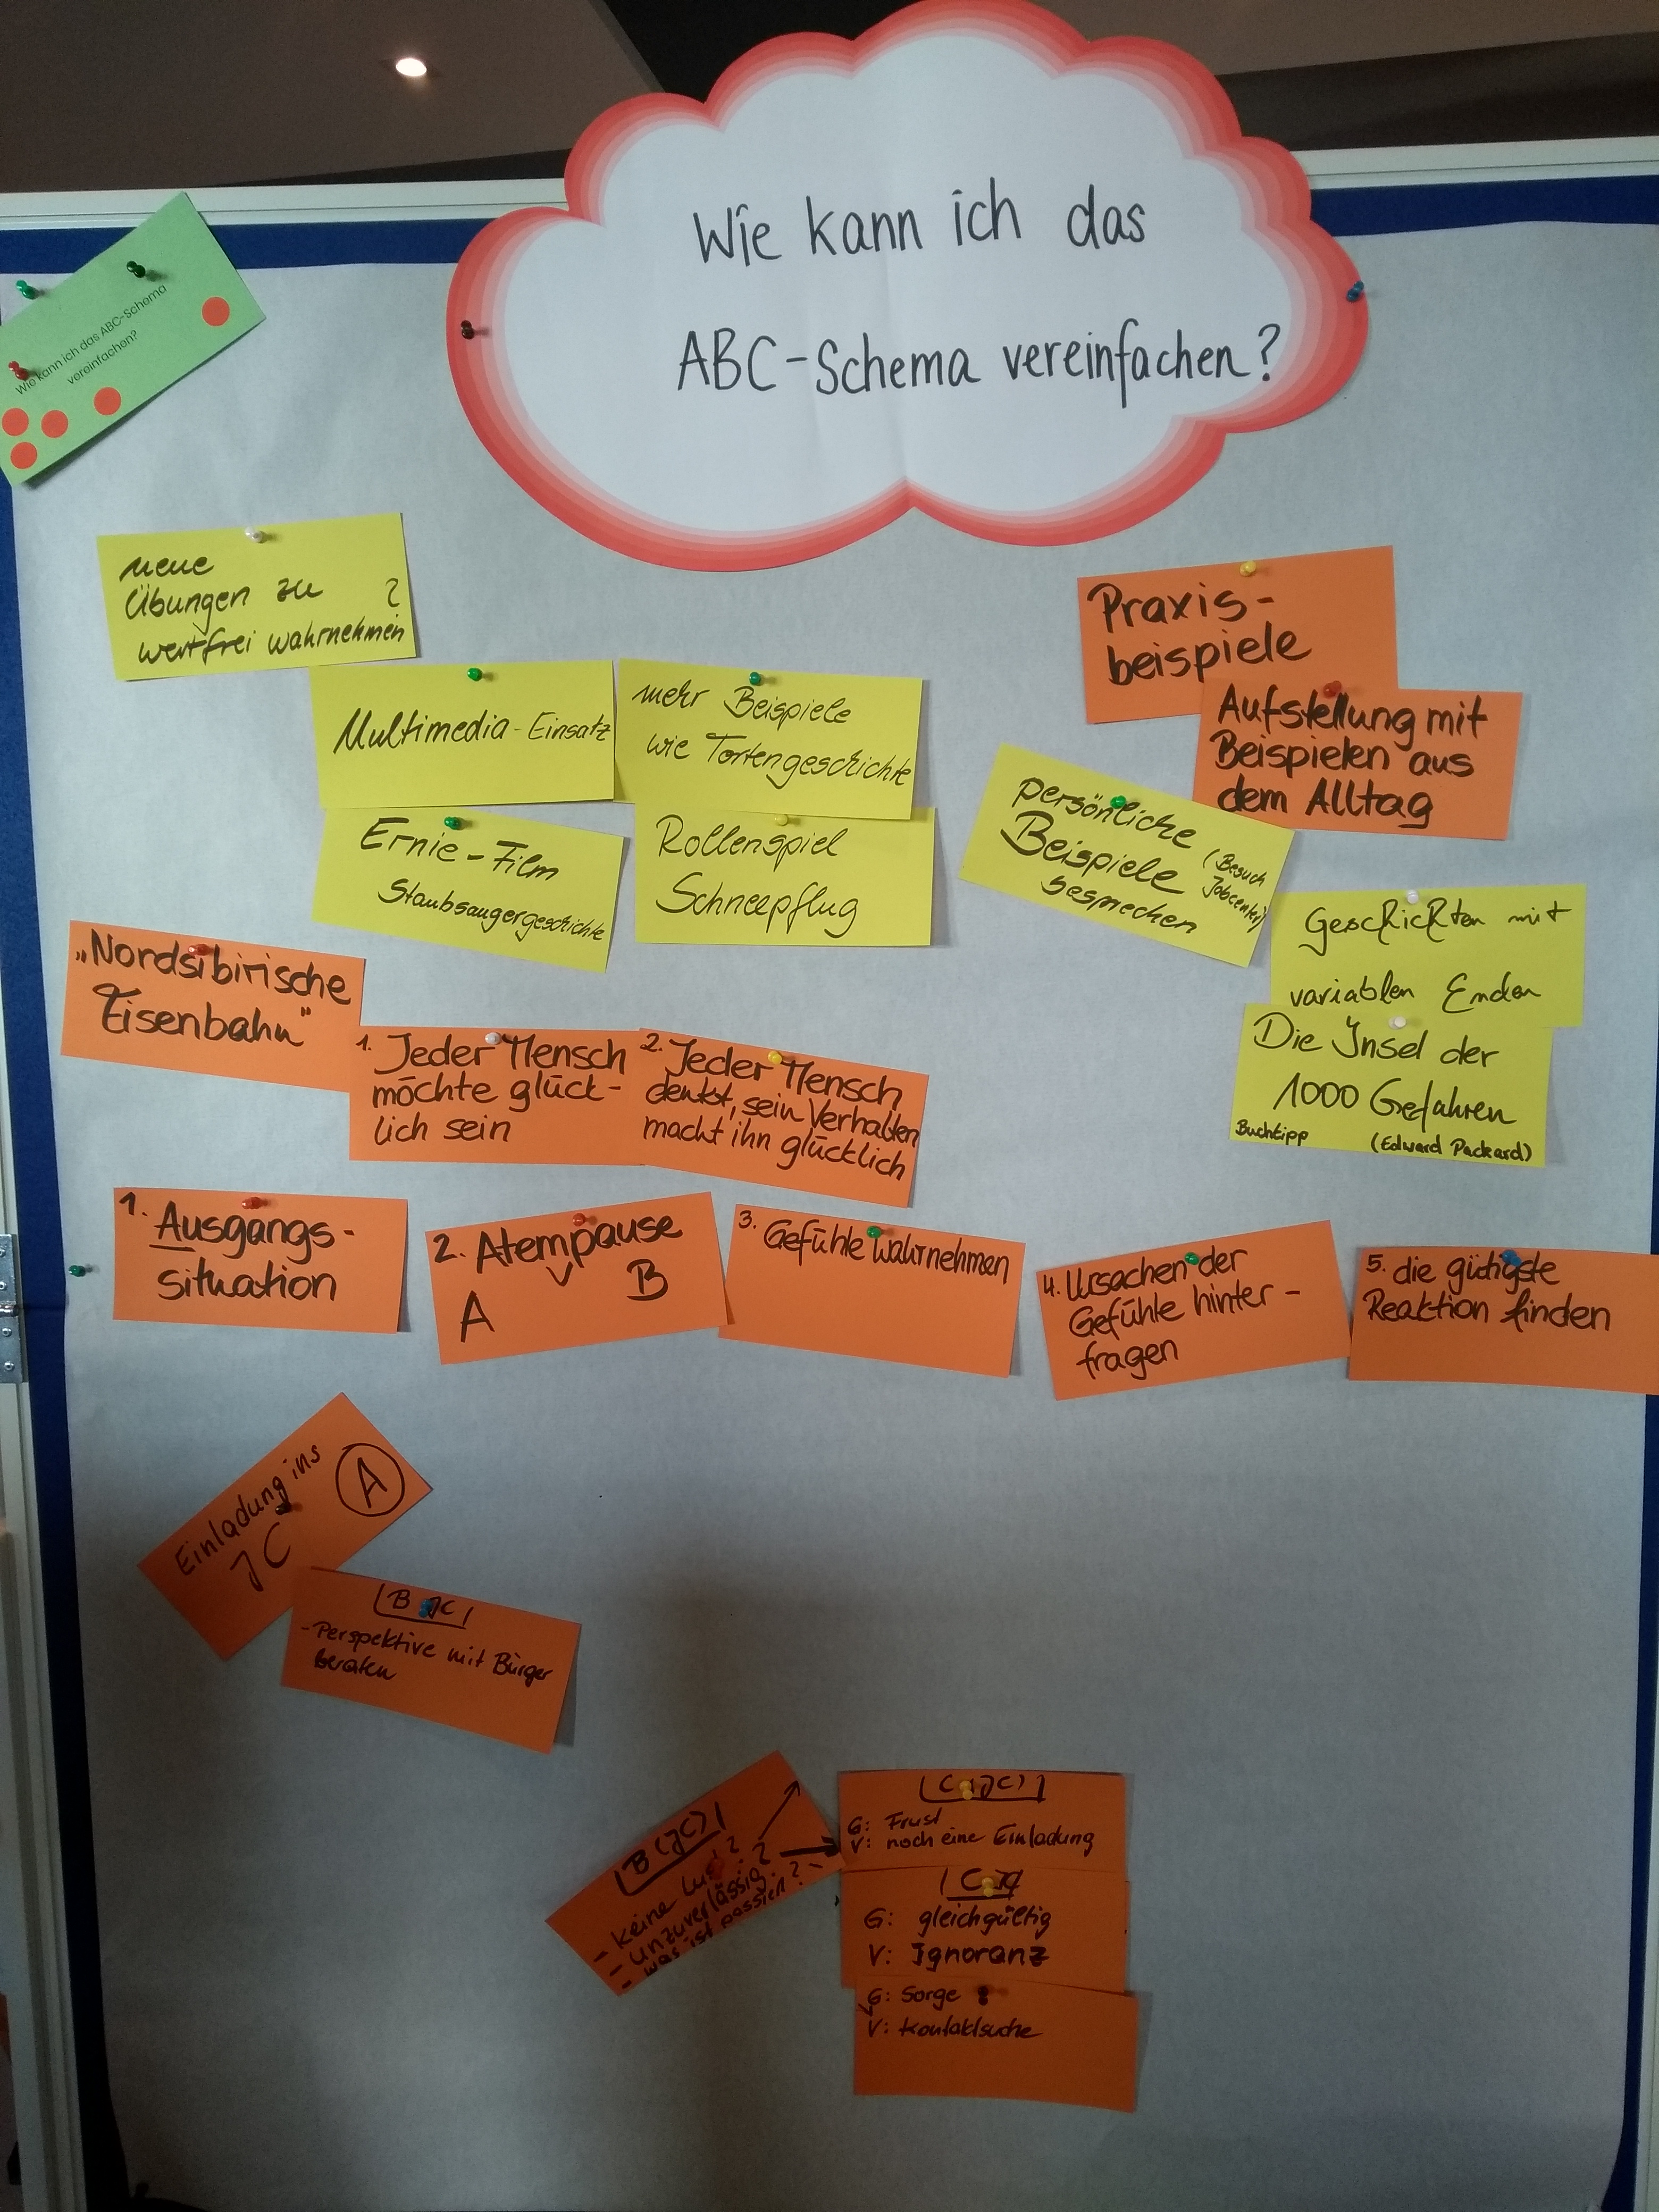 Wie kann ich das
ABC-Schema vereinfachen?
Wie kann ich das ABC-Schema
vereinfachen?
neue
Übungen zu ?
wertfrei wahrnehmen
Multimedia-Einsatz
mehr Beispiele
wie Tortengeschichte
Ernie-Film
Staubsaugergeschichte
Rollenspiel
Schneepflug
Praxis-
beispiele
Aufstellung mit
Beispielen aus
dem Alltag
persönliche
Beispiele (Besuch
Jobcenter)
besprechen
Geschichten mit
variablen Enden
Die Insel der
1000 Gefahren
Buchtipp (Edward Packard)
„Nordsibirische
Eisenbahn"
1. Jeder Mensch
möchte glück-
lich sein
2. Jeder Mensch
denkt, sein Verhalten
macht ihn glücklich
1. Ausgangs-
situation
2. Atempause
A B
3. Gefühle wahrnehmen
4. Ursachen der
Gefühle hinter-
fragen
5. die gütigste
Reaktion finden
Einladung ins
JC
A
B JC
- Perspektive mit Bürger
beraten
B (JC)
- keine Lust ?
- unzuverlässig ?
- was ist passiert ?
C (JC)
G: Frust
V: noch eine Einladung
C JC
G: gleichgültig
V: Ignoranz
G: Sorge
V: Kontaktsuche